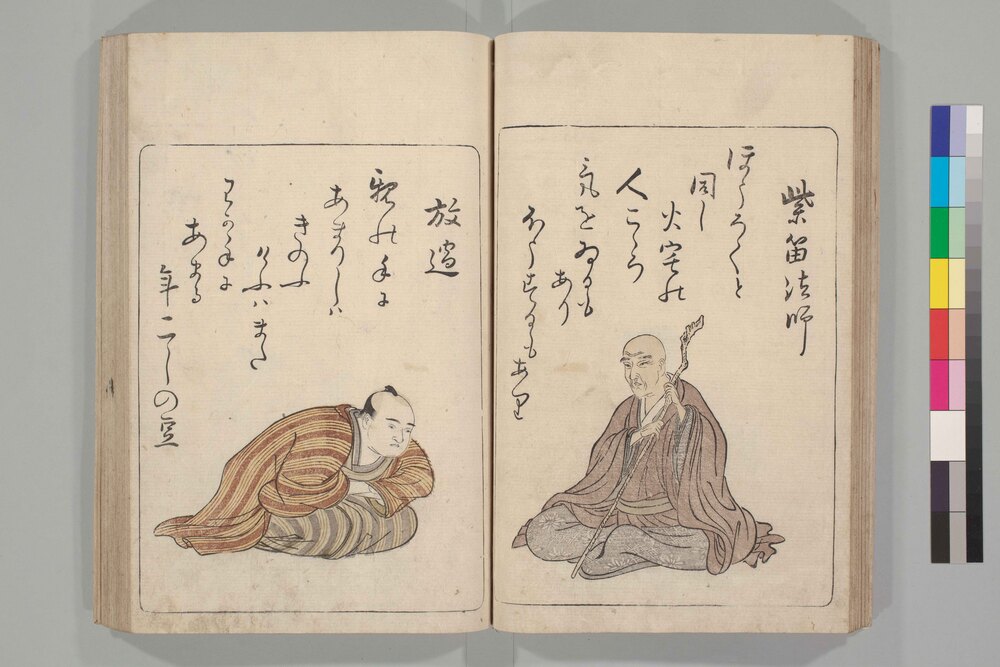 紫笛法師
ほうろくと
同し
火宅の
人こゝろ
気をゐるも
あり
もあり
放
親の手に
あまりしハ
きのふ
けふハまた
わか手に
あまる
年こしの豆